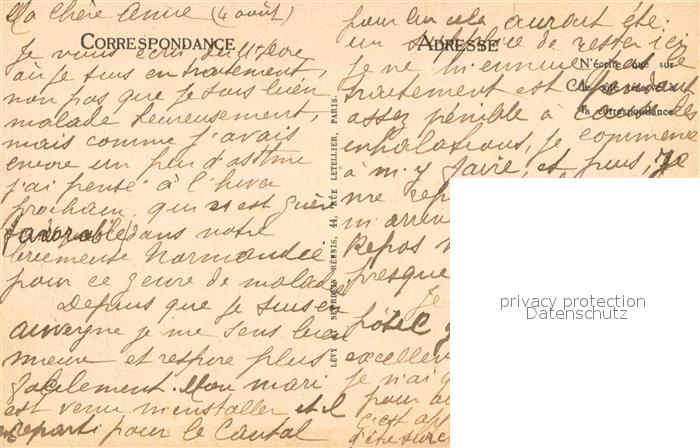 Ma chère Anne (4 août)
CORRESPONDANCE
Je vous écris du
où je suis en traitement,
non pas que je sois bien
malade heureusement,
mais comme j'avais
encore un peu d'asthme
j'ai pensé à l'hiver
prochain, qui n'est guère
favorable dans notre
brumeuse Normandie
pour ce genre de malade
Depuis que je suis en
Auvergne je me sens bien
mieux et respire plus
facilement. Mon mari
est venu m'installer et il
reparti pour le Cantal
LÉVY ET NEURDEIN RÉUNIS, 44, RUE LETELLIER, PARIS.
pour lui cela aurait été
un supplice de rester ici
ADRESSE
je ne m'ennuie
N'écrire que sur
traitement est cependant
assez pénible à cause des
la correspondance
inhalations, je commence
à m'y faire, et puis, je
me
m'arrive
Repos
presque
Je
hôtel
excellen
je n'ai
pour
c'est
d'être
privacy protection
Datenschutz